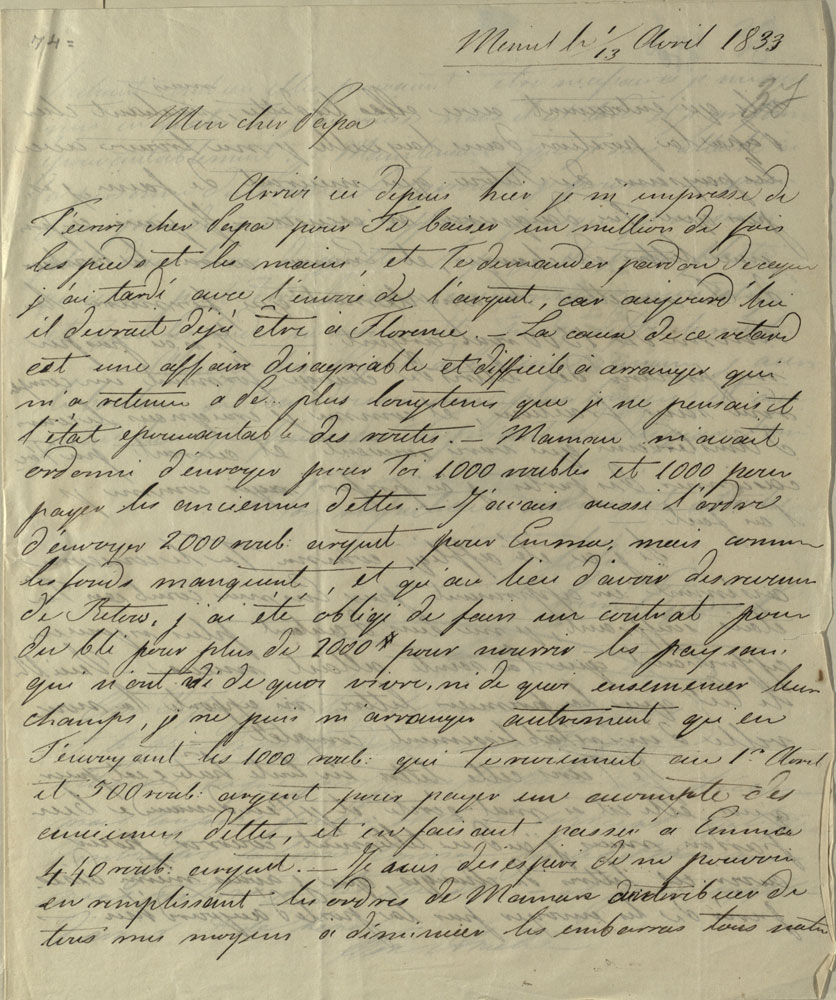 74=
Memel le 1/13 Avril 1833
Mon cher Papa
Arrivé ici depuis hier je m'empresse de
T'écrire cher Papa pour Te baiser un million de fois
les pieds et les mains, et Te demander pardon de ce que
j'ai tardé avec l'envoie de l'argent, car aujourd'hui
il devrait déjà être à Florence. — La cause de ce retard
est une affaire disagriable et difficile à arranger qui
m'a retenu à plus longtems que je ne pensais et
l'état epouvantable des routes. — Maman m'avait
ordonné d'envoyer pour Toi 1000 roubles et 1000 pour
payer les anciennes dettes. — J'avais aussi l'ordre
d'envoyer 2000 roub: argent pour Emma, mais comme
les fonds manquent, et qu'au lieu d'avoir des revenus
de Retow, j'ai été obligé de faire un contrat pour
du blé pour plus de 2000 pour nourrir les paysans,
qui n'ont ni de quoi vivre, ni de quoi ensemencer leurs
champs, je ne puis m'arranger autrement, qu'en
T'envoyant les 1000 roub: qui Te reviennent au 1r Avril
et 500 roub: argent pour payer un acompte des
anciennes dettes, et en faisant passer à Emma
440 roub: argent. — Je suis désespéré de ne pouvoir
en remplissant les ordres de Maman contribuer de
tous mes moyens à diminuer les embarras tous